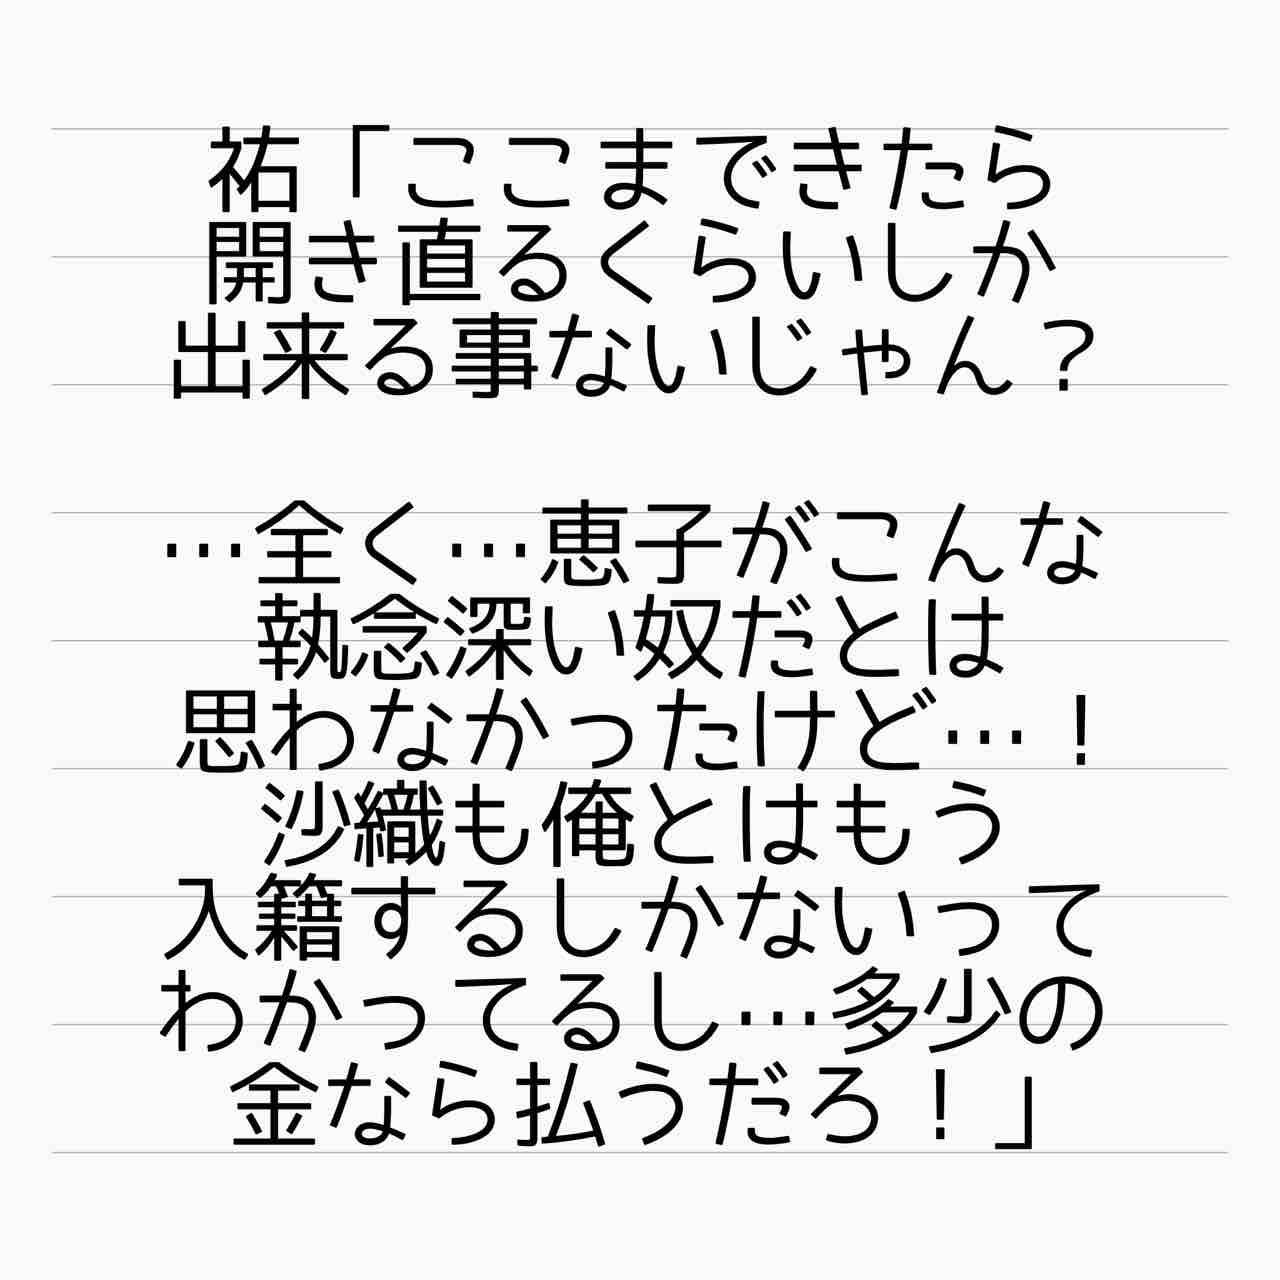 祐「ここまできたら
開き直るくらいしか
出来る事ないじゃん？
…全く…恵子がこんな
執念深い奴だとは
思わなかったけど…！
沙織も俺とはもう
入籍するしかないって
わかってるし…多少の
金なら払うだろ！」